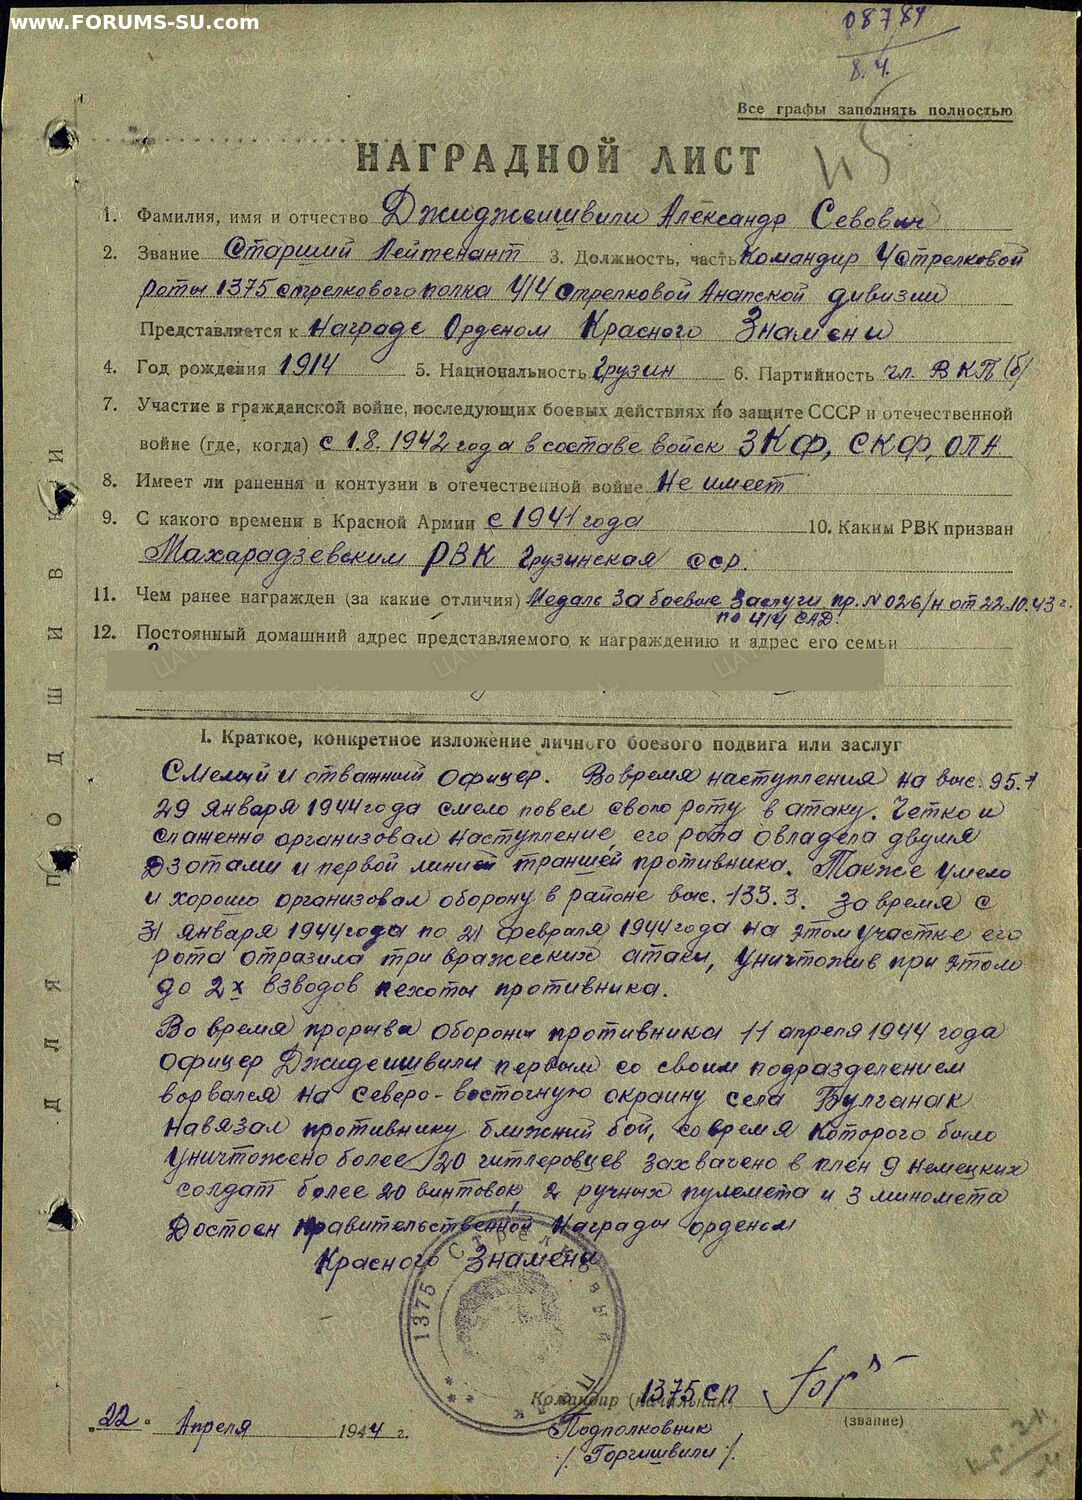 www.FORUMS-SU.com
08784
8.4.
Все графы заполнять полностью
НАГРАДНОЙ ЛИСТ
1. Фамилия, имя и отчество Джиджеишвили Александр Севович
2. Звание Старший Лейтенант 3. Должность, часть Командир 4 Стрелковой
роты 1375 стрелкового полка 414 стрелковой Анапской дивизии
Представляется к Награде Орденом Красного Знамени
4. Год рождения 1914 5. Национальность Грузин 6. Партийность чл. ВКП(б)
7. Участие в гражданской войне, последующих боевых действиях по защите СССР и отечественной
войне (где, когда) с 1.8.1942 года в составе войск ЗКФ, СКФ, ОПА
8. Имеет ли ранения и контузии в отечественной войне Не имеет
9. С какого времени в Красной Армии с 1941 года 10. Каким РВК призван
Махарадзевским РВК Грузинская сср.
11. Чем ранее награжден (за какие отличия) Медаль За боевые Заслуги пр. N 026/н от 22.10.43 г.
по 414 САД.
12. Постоянный домашний адрес представляемого к награждению и адрес его семьи
I. Краткое, конкретное изложение личного боевого подвига или заслуг
Смелый и отважный Офицер. Во время наступления на выс. 95.1
29 января 1944 года смело повел свою роту в атаку. Четко и
слаженно организовал наступление, его рота овладела двумя
Дзотами и первой линией траншей противника. Также умело
и хорошо организовал оборону в районе выс. 133.3. За время с
31 января 1944 года по 21 февраля 1944 года на этом участке его
рота отразила три вражеских атаки, уничтожив при этом
до 2х взводов пехоты противника.
Во время прорыва Обороны противника 11 апреля 1944 года
Офицер Джидеишвили первым со своим подразделением
ворвался на северо-восточную окраину села Булганак
навязал противнику ближний бой, со время которого было
уничтожено более 20 гитлеровцев захвачено в плен 9 немецких
солдат более 20 винтовок, 2 ручных пулемета и 3 миномета
Достоен правительственной Награды орденом
Красного Знамени
1375 Стрелковый полк
Командир (начальник) 1375 сп
(звание)
"22" Апреля 1944 г.
Подполковник
/Горгишвили/.
ДЛЯ ПОДШИВКИ